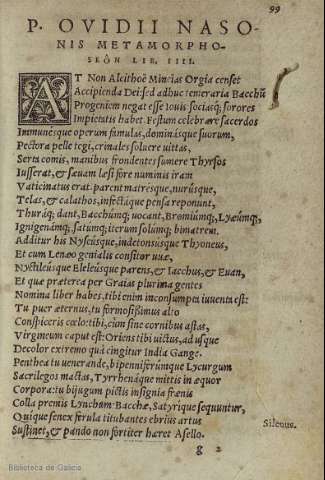 99
P. OVIDII NASO-
NIS METAMORPHO-
SEÔN LIB. IIII.
AT Non Alcithoë Mineias Orgia censet
Accipienda Dei: sed adhuc temeraria Bacchũ
Progeniem negat esse Iouis sociasq; sorores
Impietatis habet. Festum celebrare sacerdos
Immunesque operum famulas, dominasque suorum,
Pectora pelle tegi, crinales soluere uittas,
Serta comis, manibus frondentes sumere Thyrsos
Iusserat, & sæuam læsi fore numinis iram
Vaticinatus erat. parent matresque, nurúsque,
Telas, & calathos, infectáque pensa reponunt,
Thuráq; dant, Bacchũmq; uocant, Bromiumq;, Lyæũmq;
Ignigenámq;, satumq; iterum solumq; bimatrem.
Additur his Nyseúsque, indetonsusque Thyoneus,
Et cum Lenæo genialis consitor uuæ,
Nycteliúsque Eleleúsque parens, & Iacchus, & Euan,
Et quæ præterea per Graias plurima gentes
Nomina liber habes. tibi enim inconsumpta iuuenta est:
Tu puer æternus, tu formosissimus alto
Conspiceris cœlo: tibi, cùm sine cornibus astas,
Virgineum caput est: Oriens tibi uictus, ad usque
Decolor extremo quà cingitur India Gange.
Penthea tu uenerande, bipenniferúmque Lycurgum
Sacrilegos mactas, Tyrrhenáque mittis in æquor
Corpora: tu bijugum pictis insignia frænis
Colla premis Lyncham. Bacchæ, Satyrique sequuntur,
Quique senex ferula titubantes ebrius artus
Sustinet, & pando non fortiter hæret Asello.
Silenus.
g 2
Biblioteca de Galicia